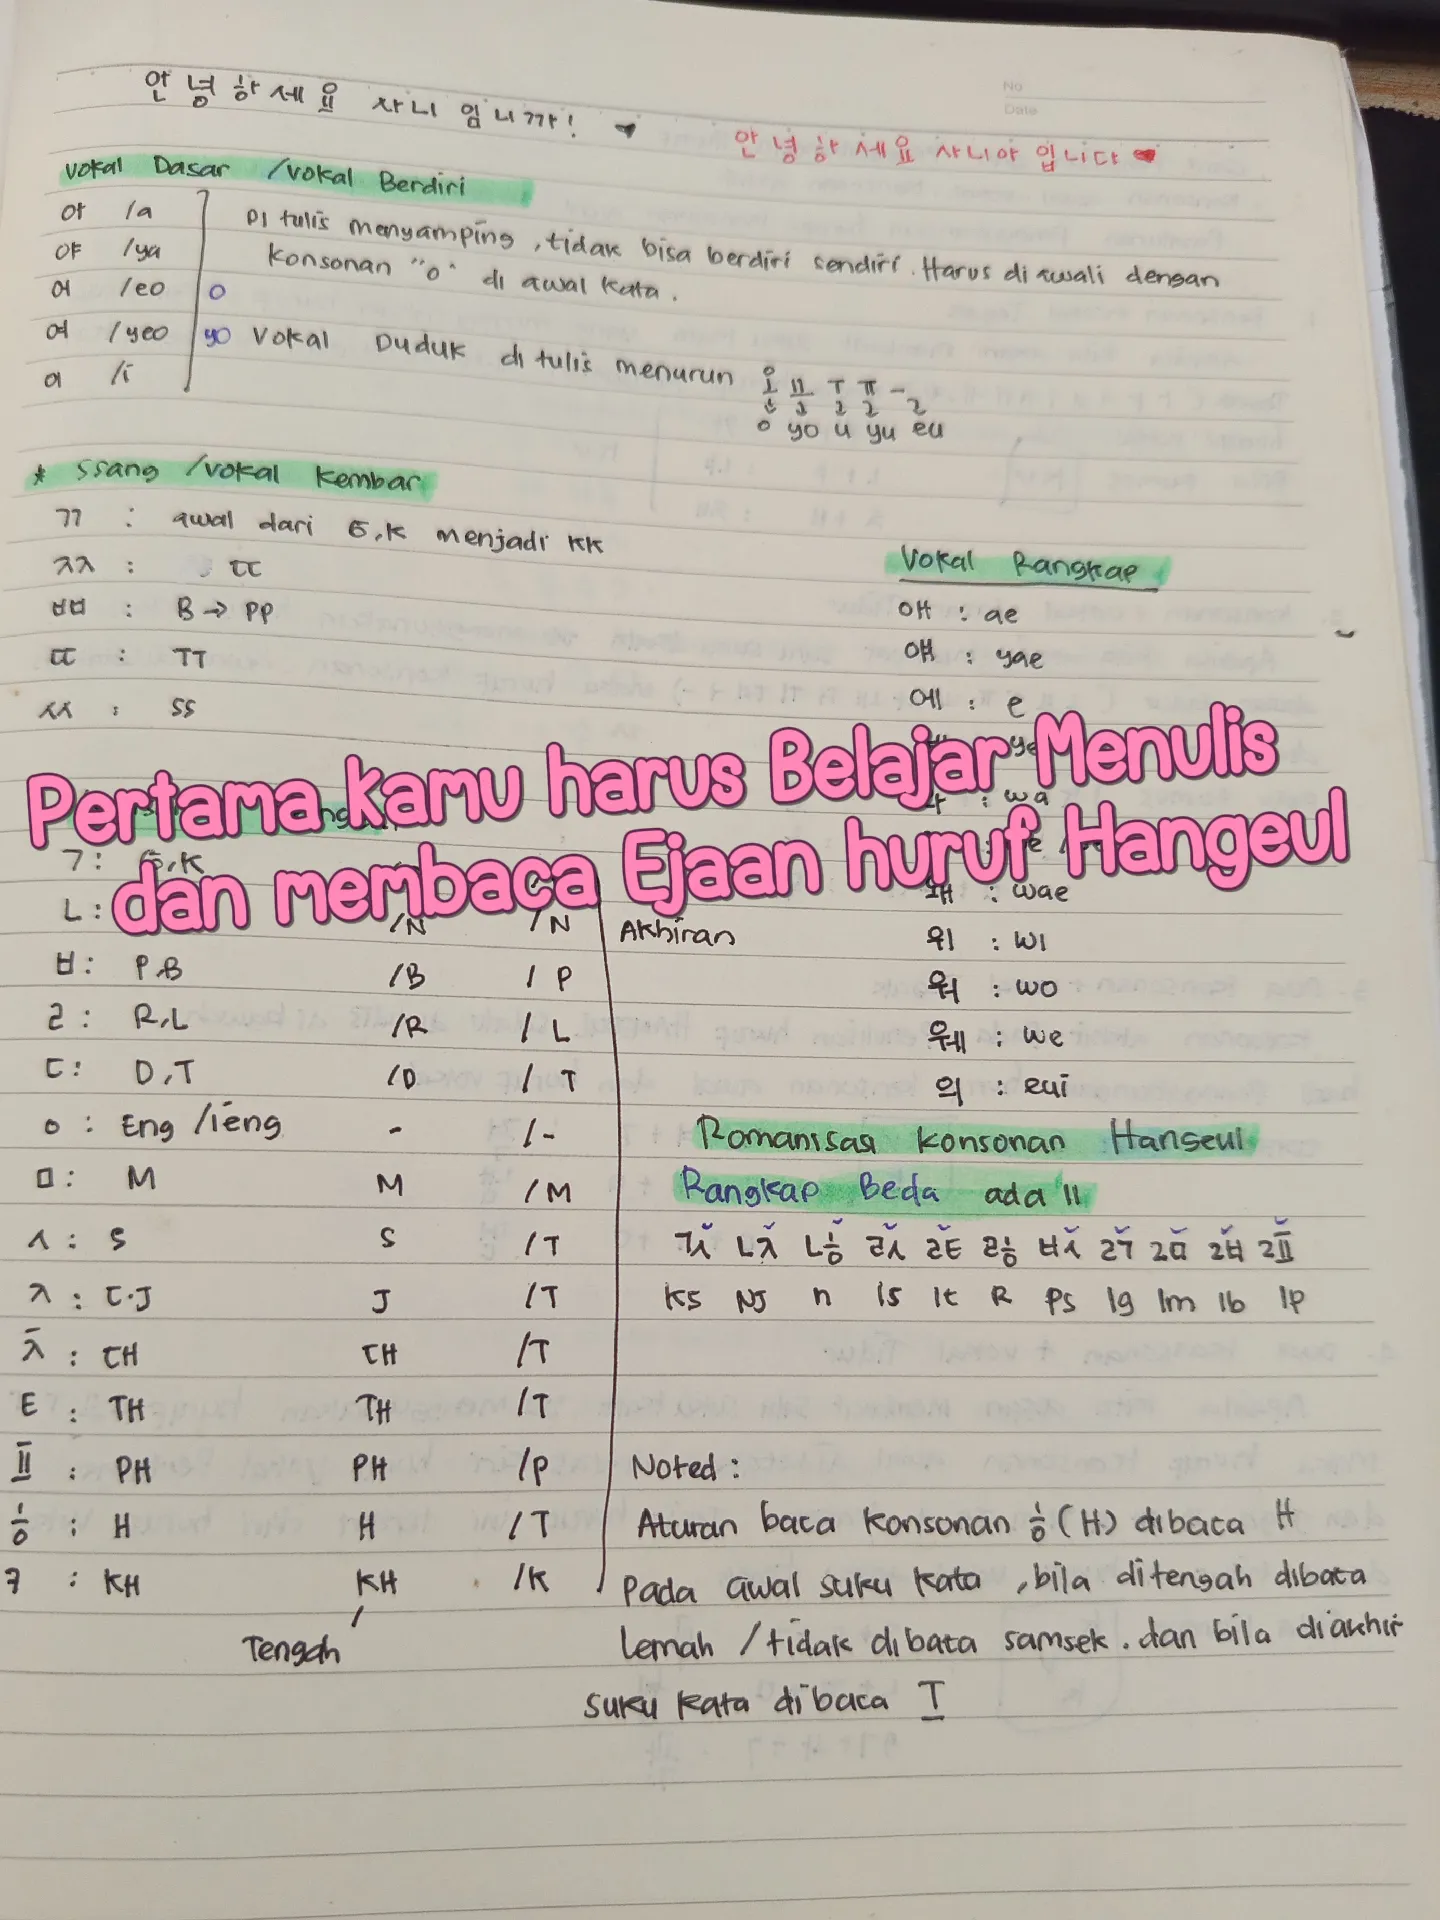 안녕하세요 사니 임니까!
No
Date
안녕하세요 사니아 입니다
Vokal Dasar /vokal Berdiri
아 /a
야 /ya
어 /eo o
여 /yeo yo
이 /i
Di tulis menyamping, tidak bisa berdiri sendiri. Harus di awali dengan
konsonan "o" di awal kata.
Vokal Duduk di tulis menurun 오 ㅛ ㅜ ㅠ ㅡ
o yo u yu eu
* Ssang /vokal kembar
ㄲ : awal dari G,K menjadi KK
ㅉ : CC
ㅃ : B → PP
ㄸ : TT
ㅆ : SS
Vokal Rangkap
애 : ae
얘 : yae
에 : e
: wa
왜 : wae
위 : wi
워 : wo
웨 : we
의 : eui
Pertama kamu harus Belajar Menulis
dan membaca Ejaan huruf Hangeul
ㄱ : G,K
ㄴ : /N /N Akhiran
ㅂ : P,B /B / P
ㄹ : R,L /R / L
ㄷ : D,T /D / T
ㅇ : Eng /ieng - /-
ㅁ : M M /M
ㅅ : S S /T
ㅈ : C.J J /T
ㅊ : CH CH /T
ㅌ : TH TH /T
ㅍ : PH PH /P
ㅎ : H H /T
ㅋ : KH KH /K
/
Tengah
Romanisasi konsonan Hangeul
Rangkap Beda ada 11
ㄳ ㄵ ㄶ ㄽ ㄾ ㅀ ㅄ ㄺ ㄻ ㄼ ㄿ
KS NJ n ls lt R Ps lg lm lb lp
Noted :
Aturan baca konsonan ㅎ (H) dibaca H
Pada awal suku kata, bila ditengah dibaca
Lemah /tidak dibaca samsek. dan bila diakhir
suku kata dibaca T